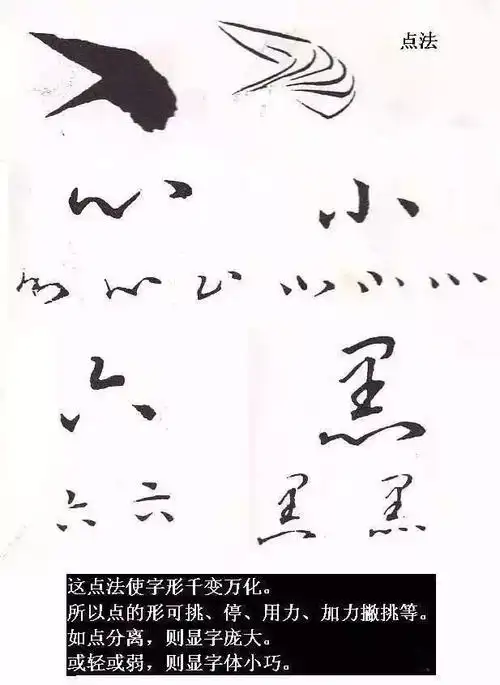 点法
心 小
心 心 心 小 小 小
六 黑
六 六 黑 黑
这点法使字形千变万化。
所以点的形可挑、停、用力、加力撇挑等。
如点分离，则显字庞大。
或轻或弱，则显字体小巧。